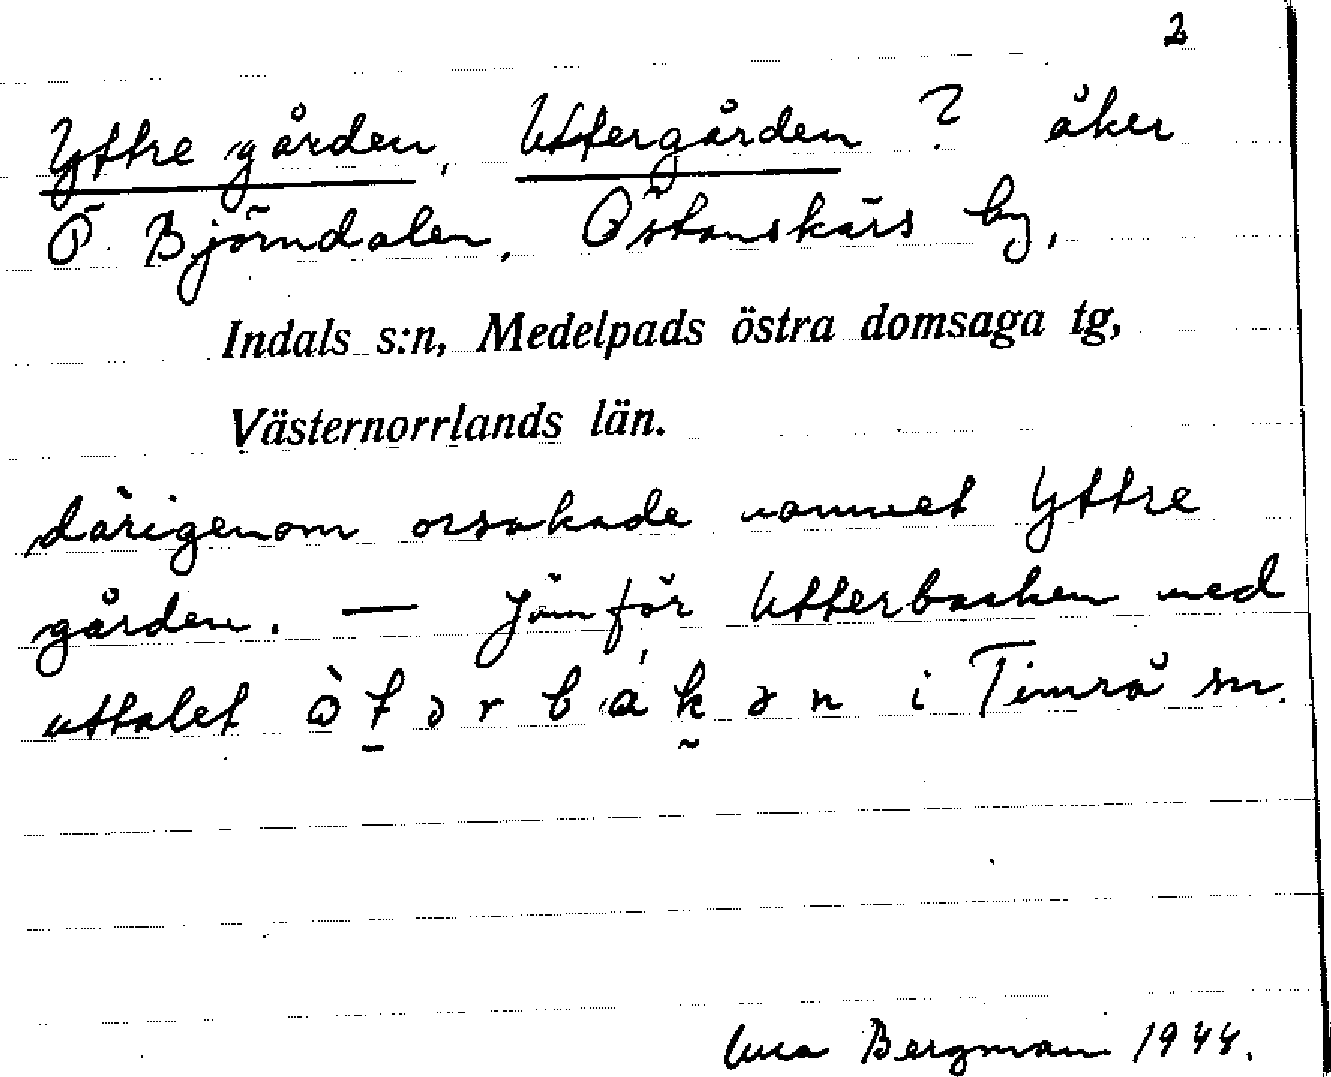 2
Yttre gården, Uttergården ? åker
Ö. Björndalen, Östanskärs by,
Indals s:n, Medelpads östra domsaga tg,
Västernorrlands län.
därigenom orsakade namnet Yttre
gården. — Jämför Utterbacken med
uttalet i Timrå sn.
Bergman 1944.